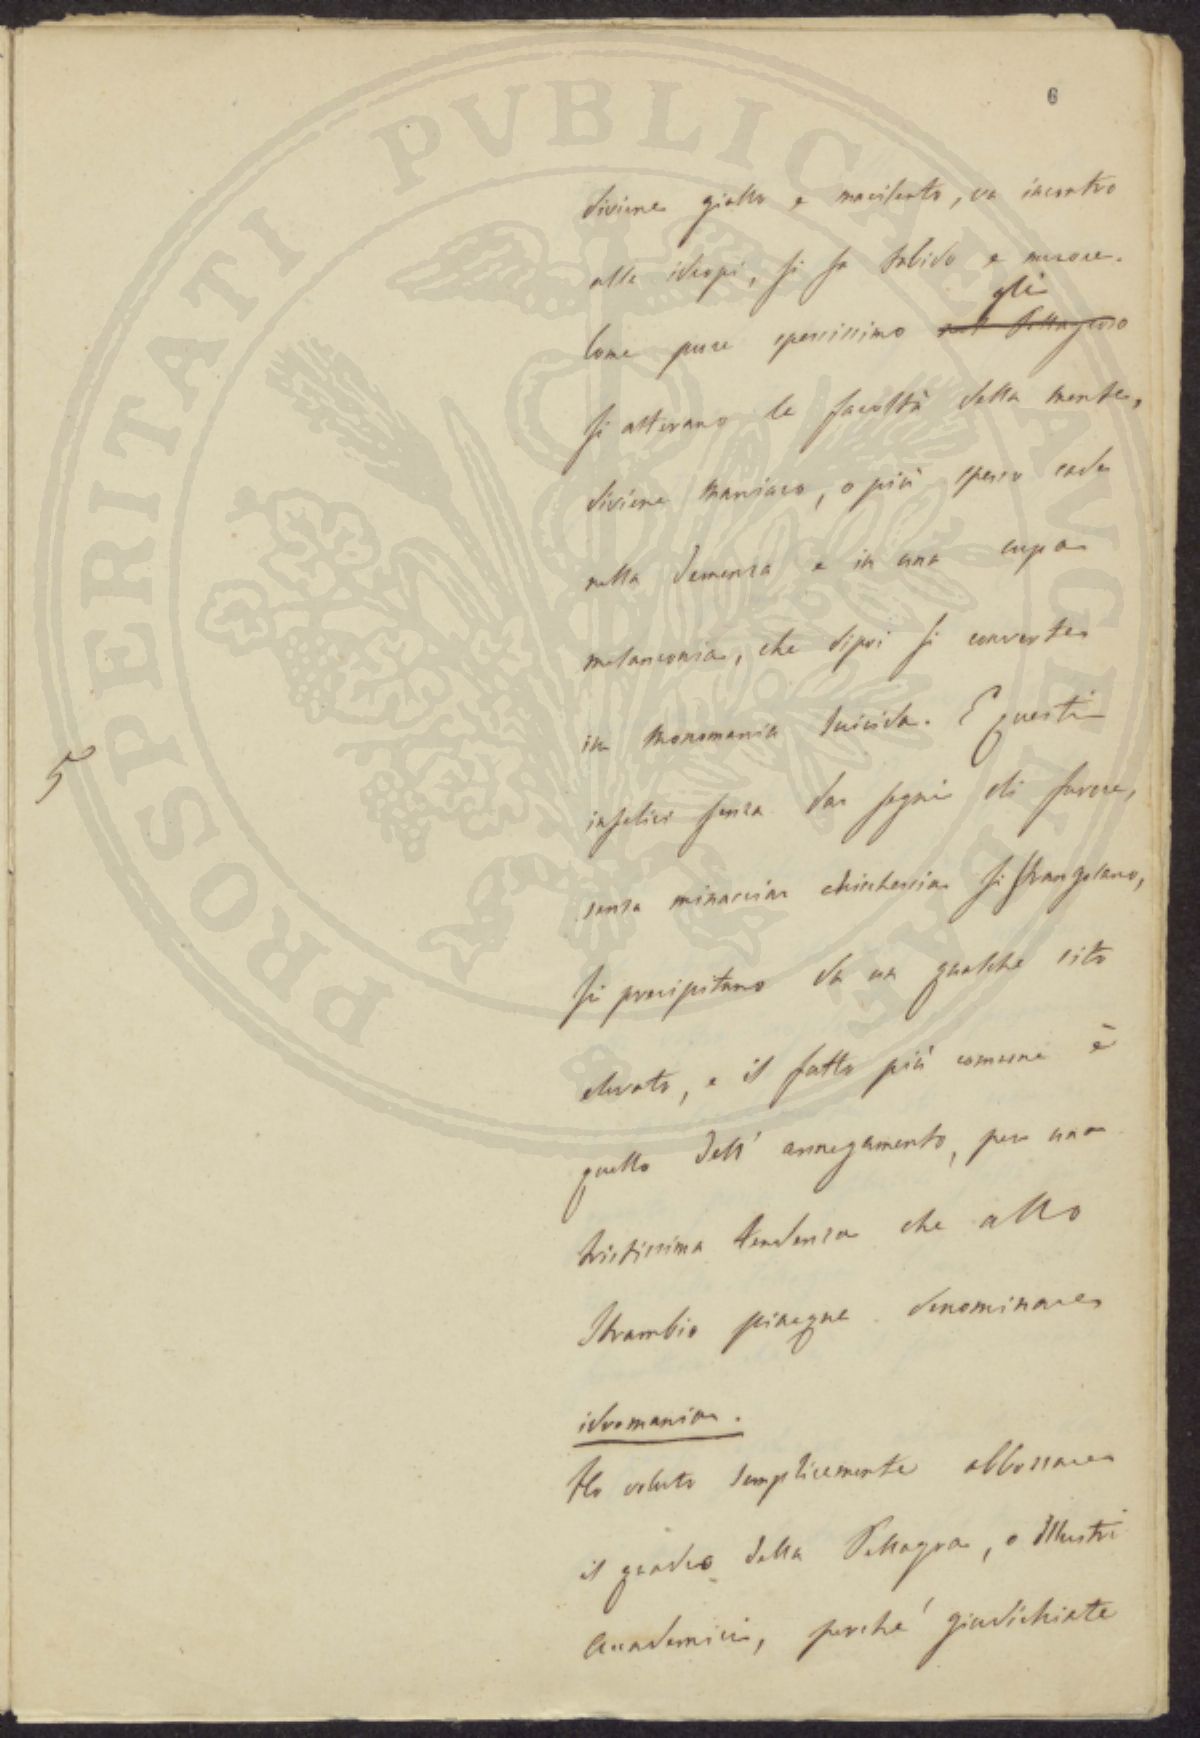 6
diviene giallo e macilento, va incontro
alle idropi, si fa tabido e muore.
gli
Come pure spessissimo nel Pellagroso
si alterano le facoltà della mente,
diviene maniaco, o più spesso cade
nella demenza e in una cupa
melanconia, che dipoi si converte
in monomania suicida. E questi
infelici senza dar segni di furore,
senza minacciar chichessia si strangolano,
si precipitano da un qualche sito
5
elevato, e il fatto più comune è
quello dell' annegamento, per una
tristissima tendenza che allo
Strambio piacque denominare
idromania.
Ho voluto semplicemente abbozzare
il quadro della Pellagra, o Illustri
Accademici, perché giudichiate
PROSPERITATI PVBLICAE AVGENDAE